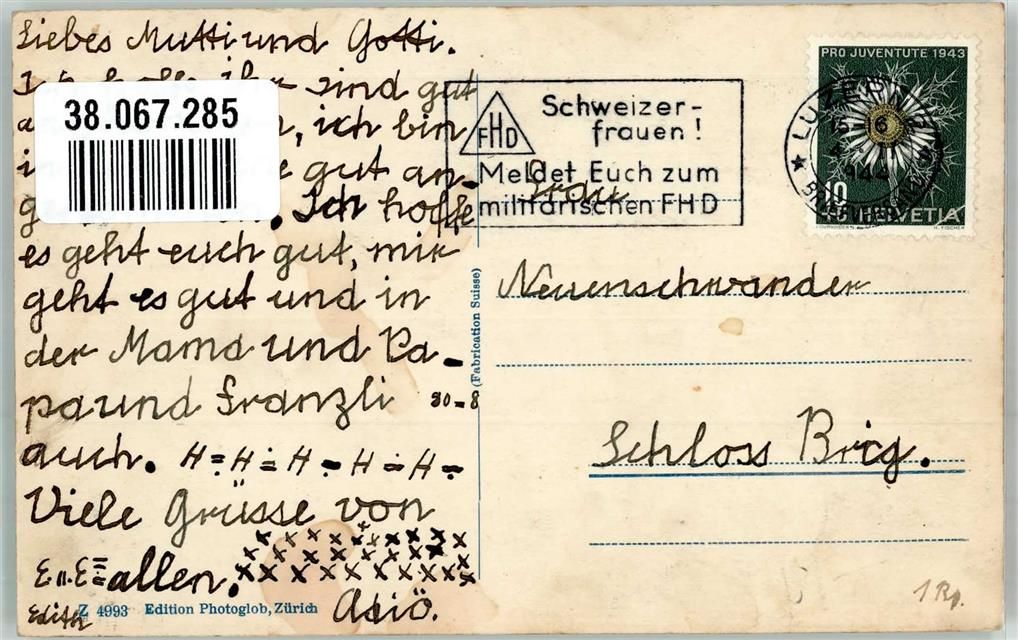 Liebes Mutti und Gotti.
ihr sind gut
ich bin
gut an-
Ich hoffe
es geht euch gut, mir
geht es gut und in
der Mama und Pa-
pa und Franzli 30=8
auch. H=H=H-H=H-
Viele Grüsse von
allen.
Adiö.
Edith
Z 4993 Edition Photoglob, Zürich
38.067.285
(Fabrication Suisse)
FHD
Schweizer-
frauen!
Meldet Euch zum
militärischen FHD
PRO JUVENTUTE 1943
LUZERN
1944
10
HELVETIA
H. FISCHER
Frau
Neuenschwander
Schloss Brig.
1 Rp.